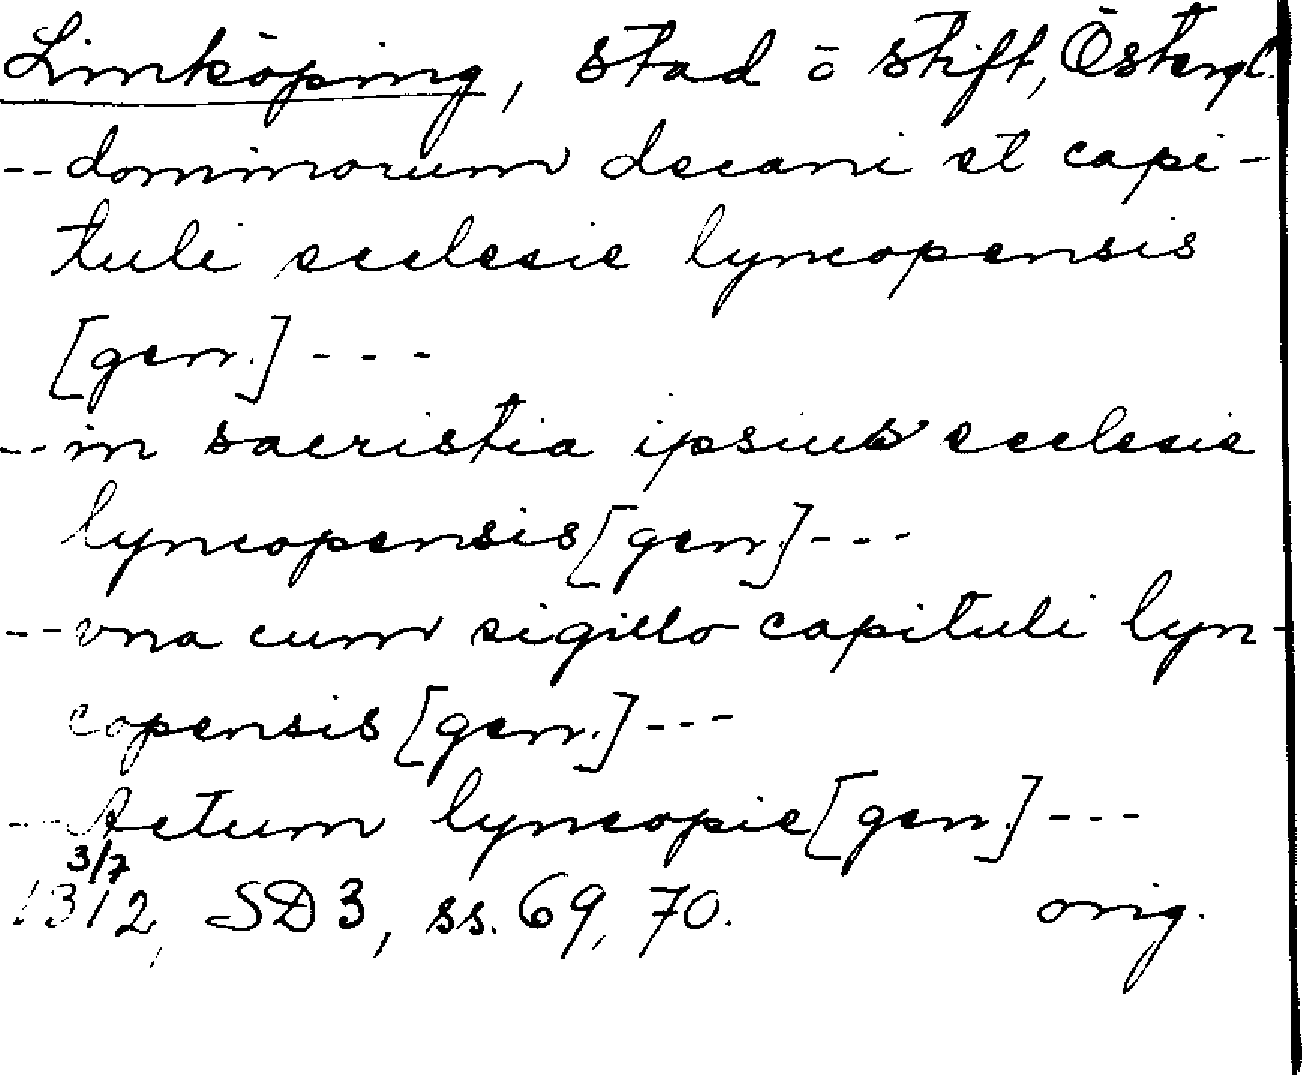 Linköping, stad o stift, Östergl.
-- dominorum decani et capi-
tuli ecclesie lyncopensis
[gen.] - - -
-- in sacristia ipsius ecclesie
lyncopensis [gen.] - - -
-- vna cum sigillo capituli lyn-
copensis [gen.] - - -
-- Actum lyncopie [gen.] - - -
3/7
1312, SD 3, ss. 69, 70. orig.